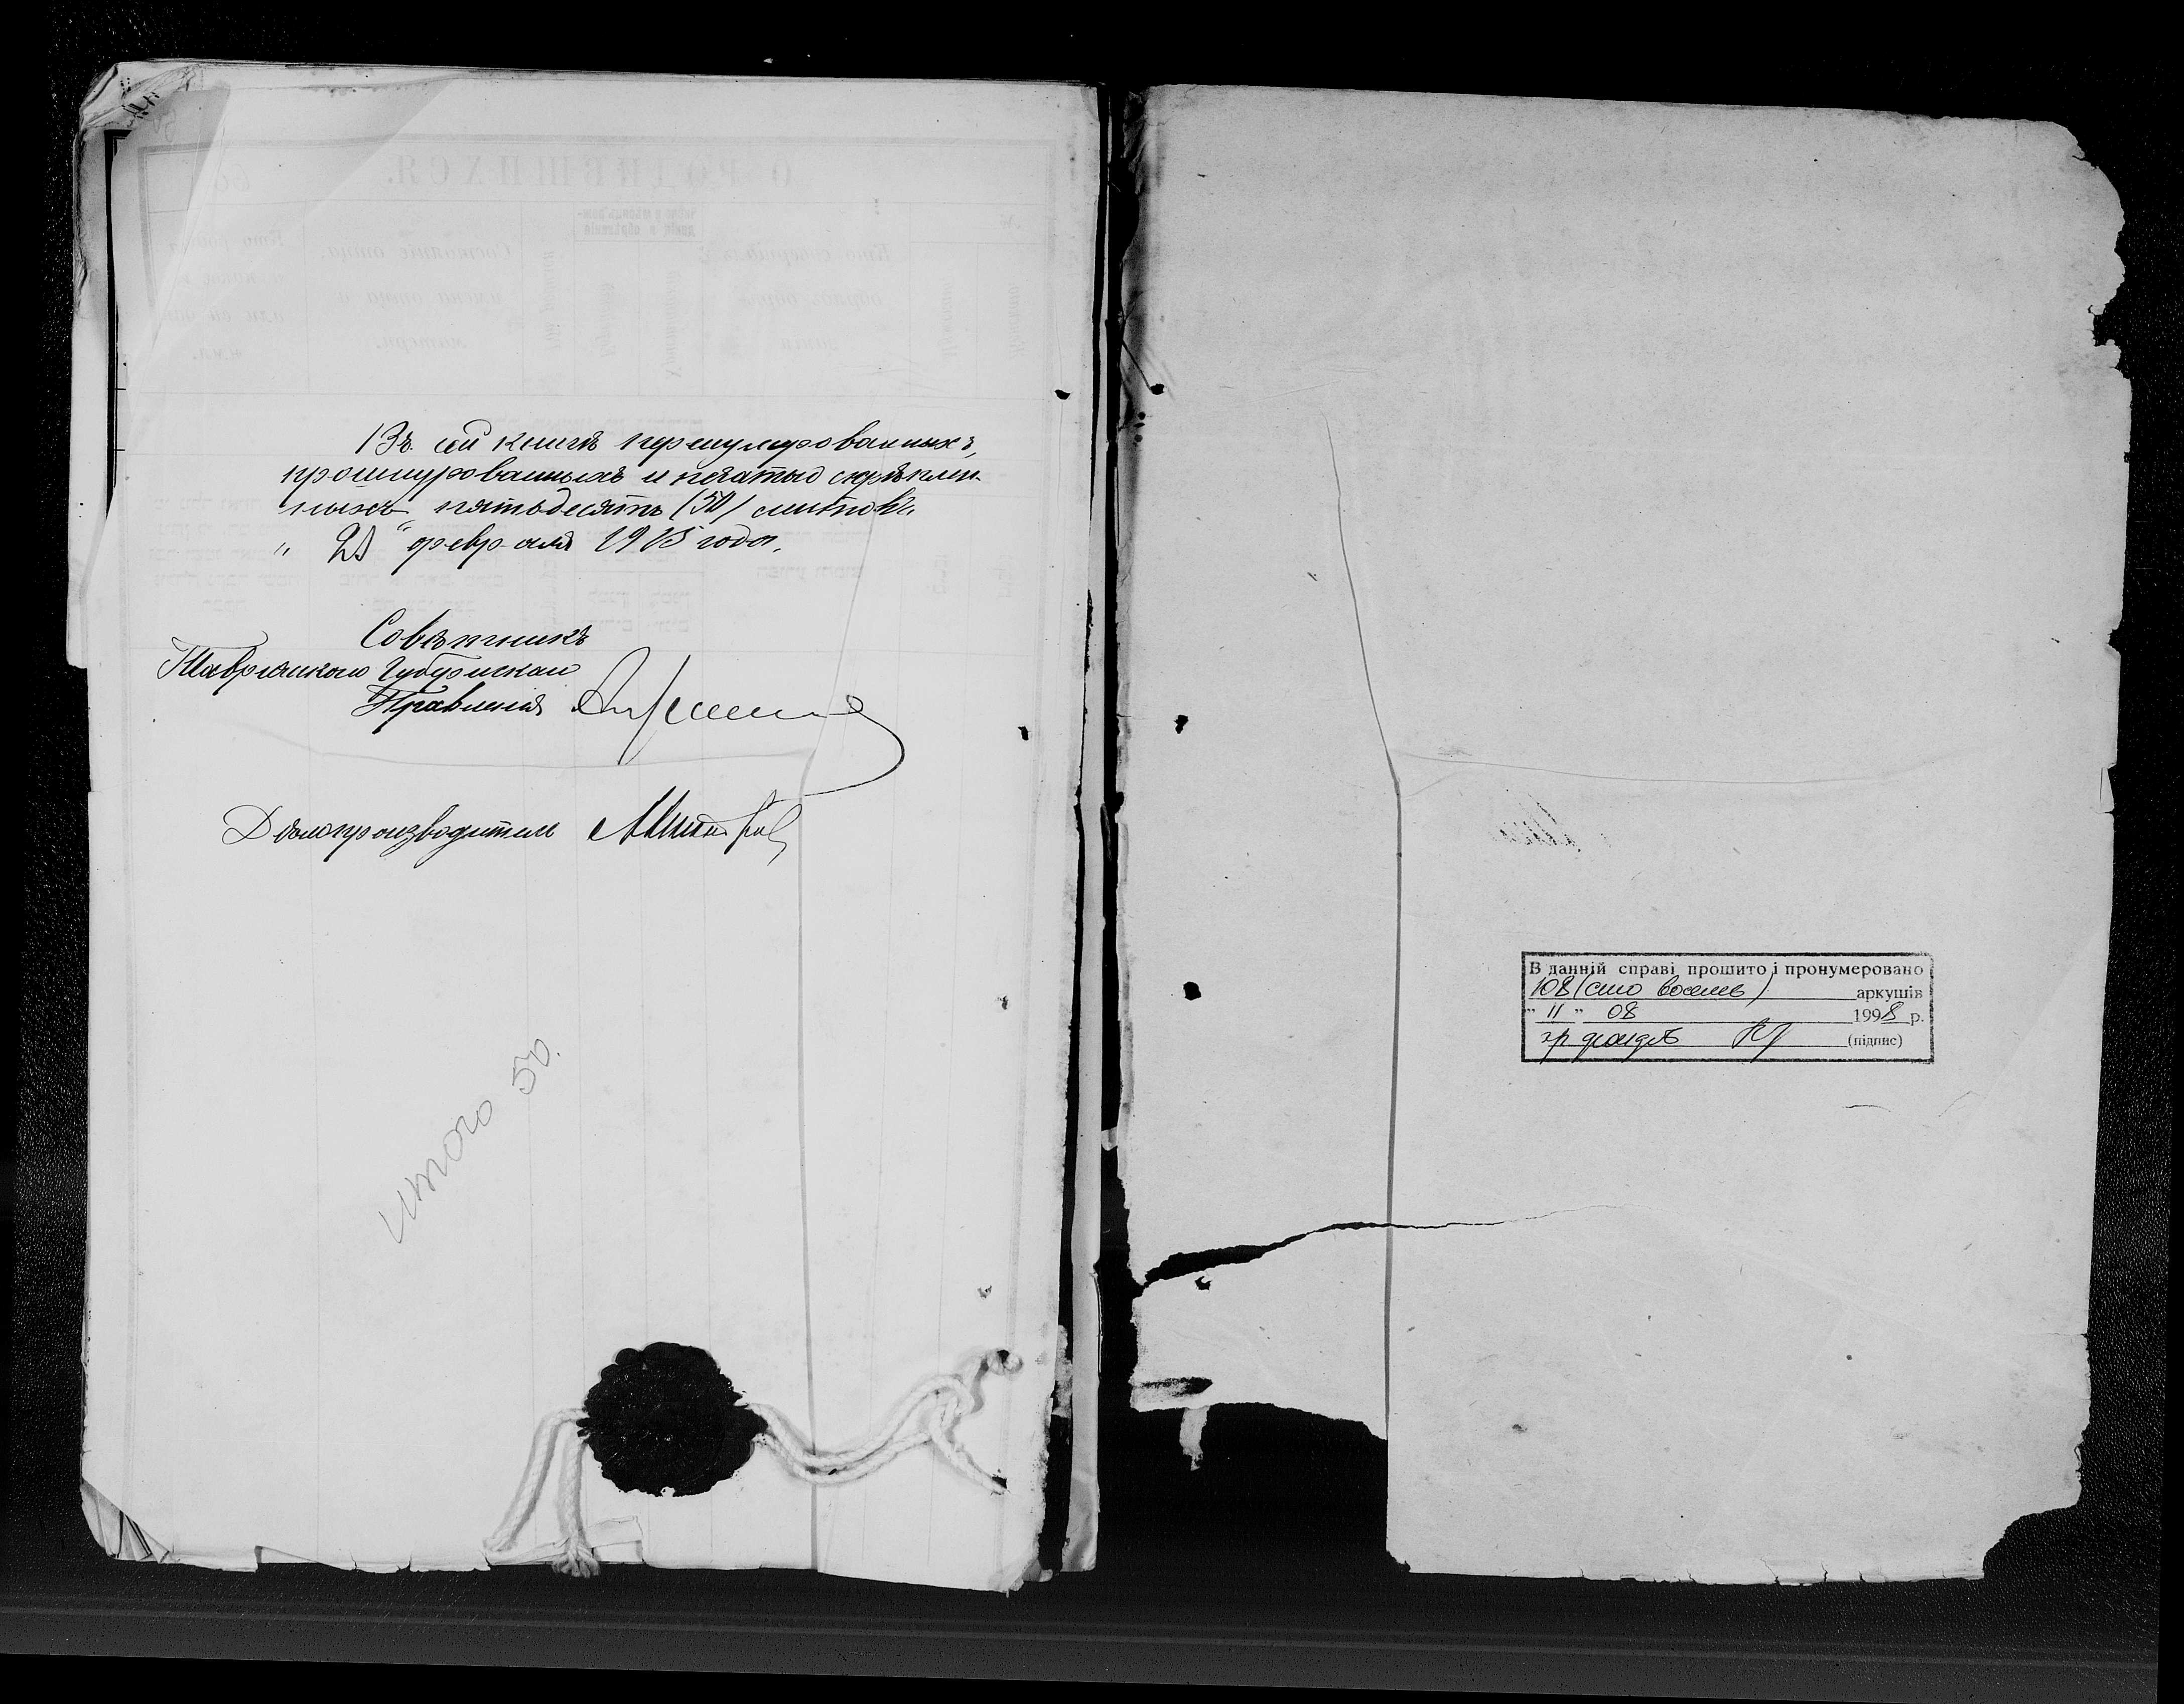 Въ сей книгѣ перенумерованныхъ,
прошнурованныхъ и печатью скрѣплен-
ныхъ пятьдесятъ (50) листовъ.
" 21 " февраля 1915 года.
Совѣтникъ
Таврическаго Губернскаго
Правленія
Дѣлопроизводитель
итого 50.
В данній справі прошито і пронумеровано
108 (сто восемь) аркушів
" 11 " 08 1998 р.
(підпис)